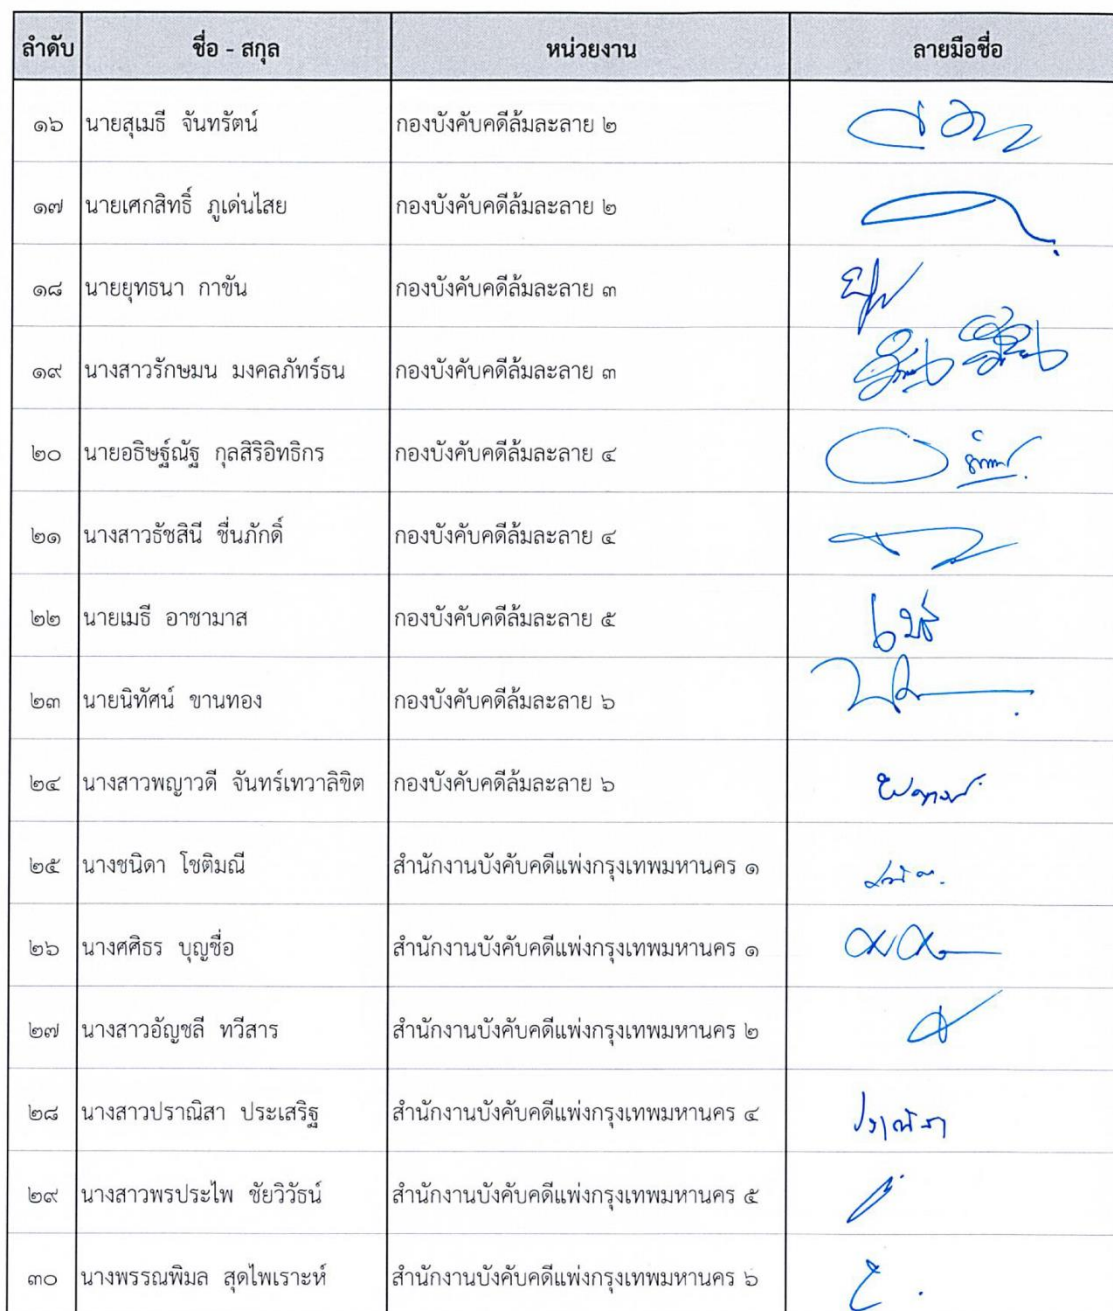 ลำดับ ชื่อ - สกุล หน่วยงาน ลายมือชื่อ
๑๖ นายสุเมธี จันทรัตน์ กองบังคับคดีล้มละลาย ๒
๑๗ นายเศกสิทธิ์ ภูเด่นไสย กองบังคับคดีล้มละลาย ๒
๑๘ นายยุทธนา กาขัน กองบังคับคดีล้มละลาย ๓
๑๙ นางสาวรักษมน มงคลภัทร์ธน กองบังคับคดีล้มละลาย ๓
๒๐ นายอธิษฐ์ณัฐ กุลสิริอิทธิกร กองบังคับคดีล้มละลาย ๔
๒๑ นางสาวธัชสินี ชื่นภักดิ์ กองบังคับคดีล้มละลาย ๔
๒๒ นายเมธี อาชามาส กองบังคับคดีล้มละลาย ๕ เมธี
๒๓ นายนิทัศน์ ขานทอง กองบังคับคดีล้มละลาย ๖
๒๔ นางสาวพญาวดี จันทร์เทวาลิขิต กองบังคับคดีล้มละลาย ๖
๒๕ นางชนิดา โชติมณี สำนักงานบังคับคดีแพ่งกรุงเทพมหานคร ๑
๒๖ นางศศิธร บุญชื่อ สำนักงานบังคับคดีแพ่งกรุงเทพมหานคร ๑
๒๗ นางสาวอัญชลี ทวีสาร สำนักงานบังคับคดีแพ่งกรุงเทพมหานคร ๒
๒๘ นางสาวปราณิสา ประเสริฐ สำนักงานบังคับคดีแพ่งกรุงเทพมหานคร ๔ ปราณิสา
๒๙ นางสาวพรประไพ ชัยวิวัธน์ สำนักงานบังคับคดีแพ่งกรุงเทพมหานคร ๕
๓๐ นางพรรณพิมล สุดไพเราะห์ สำนักงานบังคับคดีแพ่งกรุงเทพมหานคร ๖